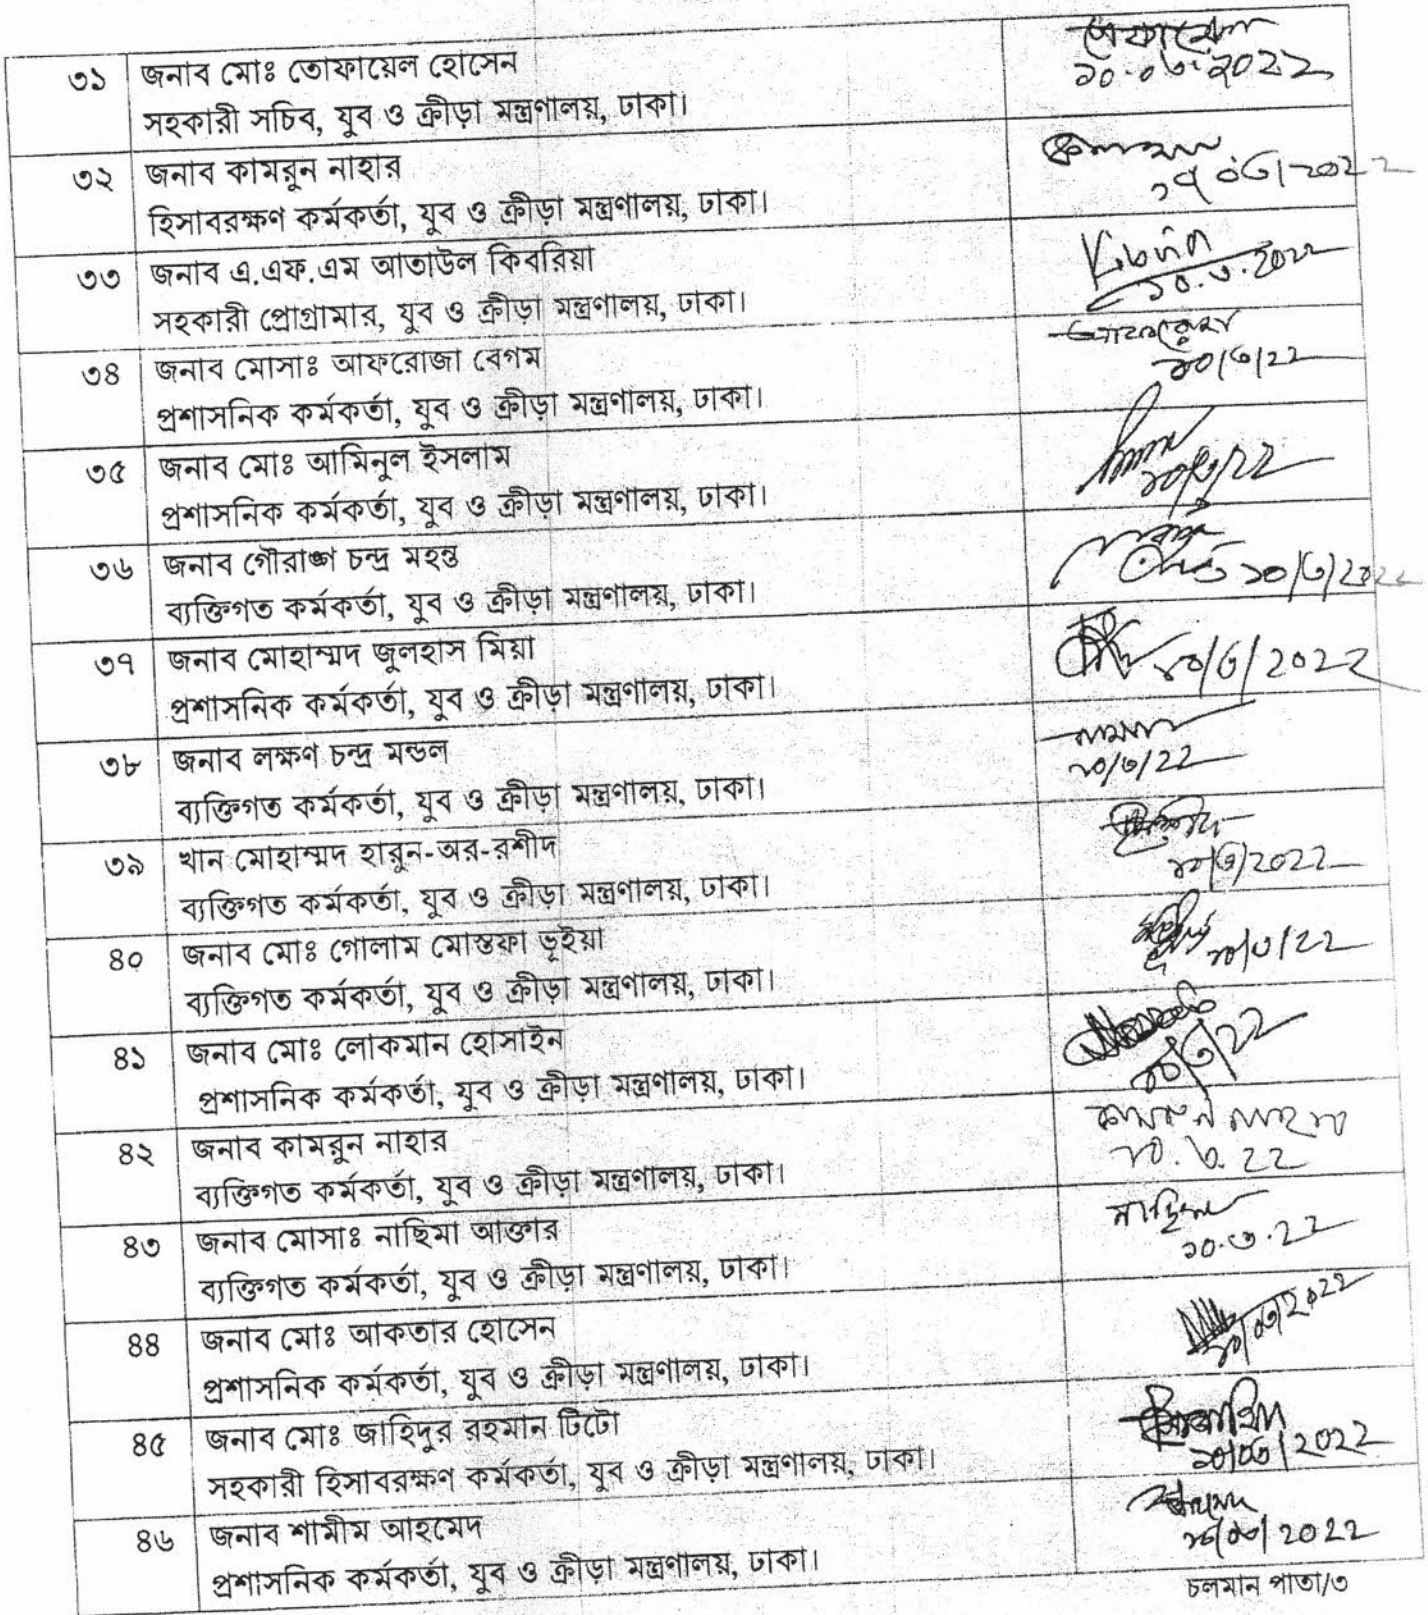 ৩১ জনাব মোঃ তোফায়েল হোসেন
সহকারী সচিব, যুব ও ক্রীড়া মন্ত্রণালয়, ঢাকা।
১০.০৩.২০২২
৩২ জনাব কামরুন নাহার
হিসাবরক্ষণ কর্মকর্তা, যুব ও ক্রীড়া মন্ত্রণালয়, ঢাকা।
৩৩ জনাব এ.এফ.এম আতাউল কিবরিয়া
সহকারী প্রোগ্রামার, যুব ও ক্রীড়া মন্ত্রণালয়, ঢাকা।
১০.৩.২০২২
৩৪ জনাব মোসাঃ আফরোজা বেগম
প্রশাসনিক কর্মকর্তা, যুব ও ক্রীড়া মন্ত্রণালয়, ঢাকা।
১০/৩/২২
৩৫ জনাব মোঃ আমিনুল ইসলাম
প্রশাসনিক কর্মকর্তা, যুব ও ক্রীড়া মন্ত্রণালয়, ঢাকা।
১০/৩/২২
৩৬ জনাব গৌরাঙ্গ চন্দ্র মহন্ত
ব্যক্তিগত কর্মকর্তা, যুব ও ক্রীড়া মন্ত্রণালয়, ঢাকা।
১০/৩/২০২২
৩৭ জনাব মোহাম্মদ জুলহাস মিয়া
প্রশাসনিক কর্মকর্তা, যুব ও ক্রীড়া মন্ত্রণালয়, ঢাকা।
১০/৩/২০২২
৩৮ জনাব লক্ষণ চন্দ্র মন্ডল
ব্যক্তিগত কর্মকর্তা, যুব ও ক্রীড়া মন্ত্রণালয়, ঢাকা।
১০/৩/২২
৩৯ খান মোহাম্মদ হারুন-অর-রশীদ
ব্যক্তিগত কর্মকর্তা, যুব ও ক্রীড়া মন্ত্রণালয়, ঢাকা।
১০/৩/২০২২
৪০ জনাব মোঃ গোলাম মোস্তফা ভূইয়া
ব্যক্তিগত কর্মকর্তা, যুব ও ক্রীড়া মন্ত্রণালয়, ঢাকা।
১০/৩/২২
৪১ জনাব মোঃ লোকমান হোসাইন
প্রশাসনিক কর্মকর্তা, যুব ও ক্রীড়া মন্ত্রণালয়, ঢাকা।
১০/৩/২২
৪২ জনাব কামরুন নাহার
ব্যক্তিগত কর্মকর্তা, যুব ও ক্রীড়া মন্ত্রণালয়, ঢাকা।
কামরুন নাহার
১০.৩.২২
৪৩ জনাব মোসাঃ নাছিমা আক্তার
ব্যক্তিগত কর্মকর্তা, যুব ও ক্রীড়া মন্ত্রণালয়, ঢাকা।
নাছিমা
১০.৩.২২
৪৪ জনাব মোঃ আকতার হোসেন
প্রশাসনিক কর্মকর্তা, যুব ও ক্রীড়া মন্ত্রণালয়, ঢাকা।
১০/০৩/২০২২
৪৫ জনাব মোঃ জাহিদুর রহমান টিটো
সহকারী হিসাবরক্ষণ কর্মকর্তা, যুব ও ক্রীড়া মন্ত্রণালয়, ঢাকা।
১০/০৩/২০২২
৪৬ জনাব শামীম আহমেদ
প্রশাসনিক কর্মকর্তা, যুব ও ক্রীড়া মন্ত্রণালয়, ঢাকা।
১০/০৩/২০২২
চলমান পাতা/৩